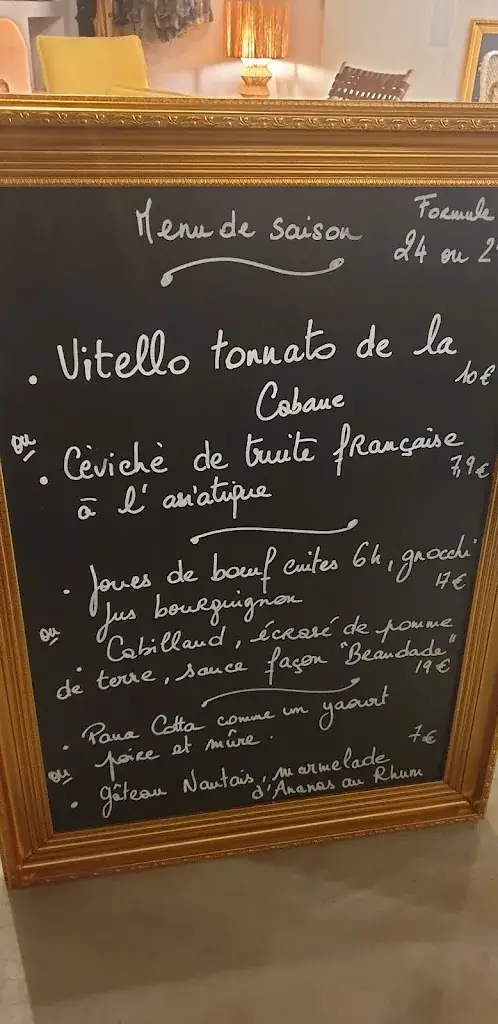 Menu de saison
Formule
24 ou 2
• Vitello tonnato de la
Cabane
10€
ou
• Cèvichè de truite française
à l'asiatique
7,9€
• Joues de bœuf cuites 6h, gnocchi
jus bourguignon
17€
ou
• Cabillaud, écrasé de pomme
de terre, sauce façon "Brandade"
19€
• Pana Cotta comme un yaourt
poire et mûre.
7€
ou
• gâteau Nantais, marmelade
d'Ananas au Rhum